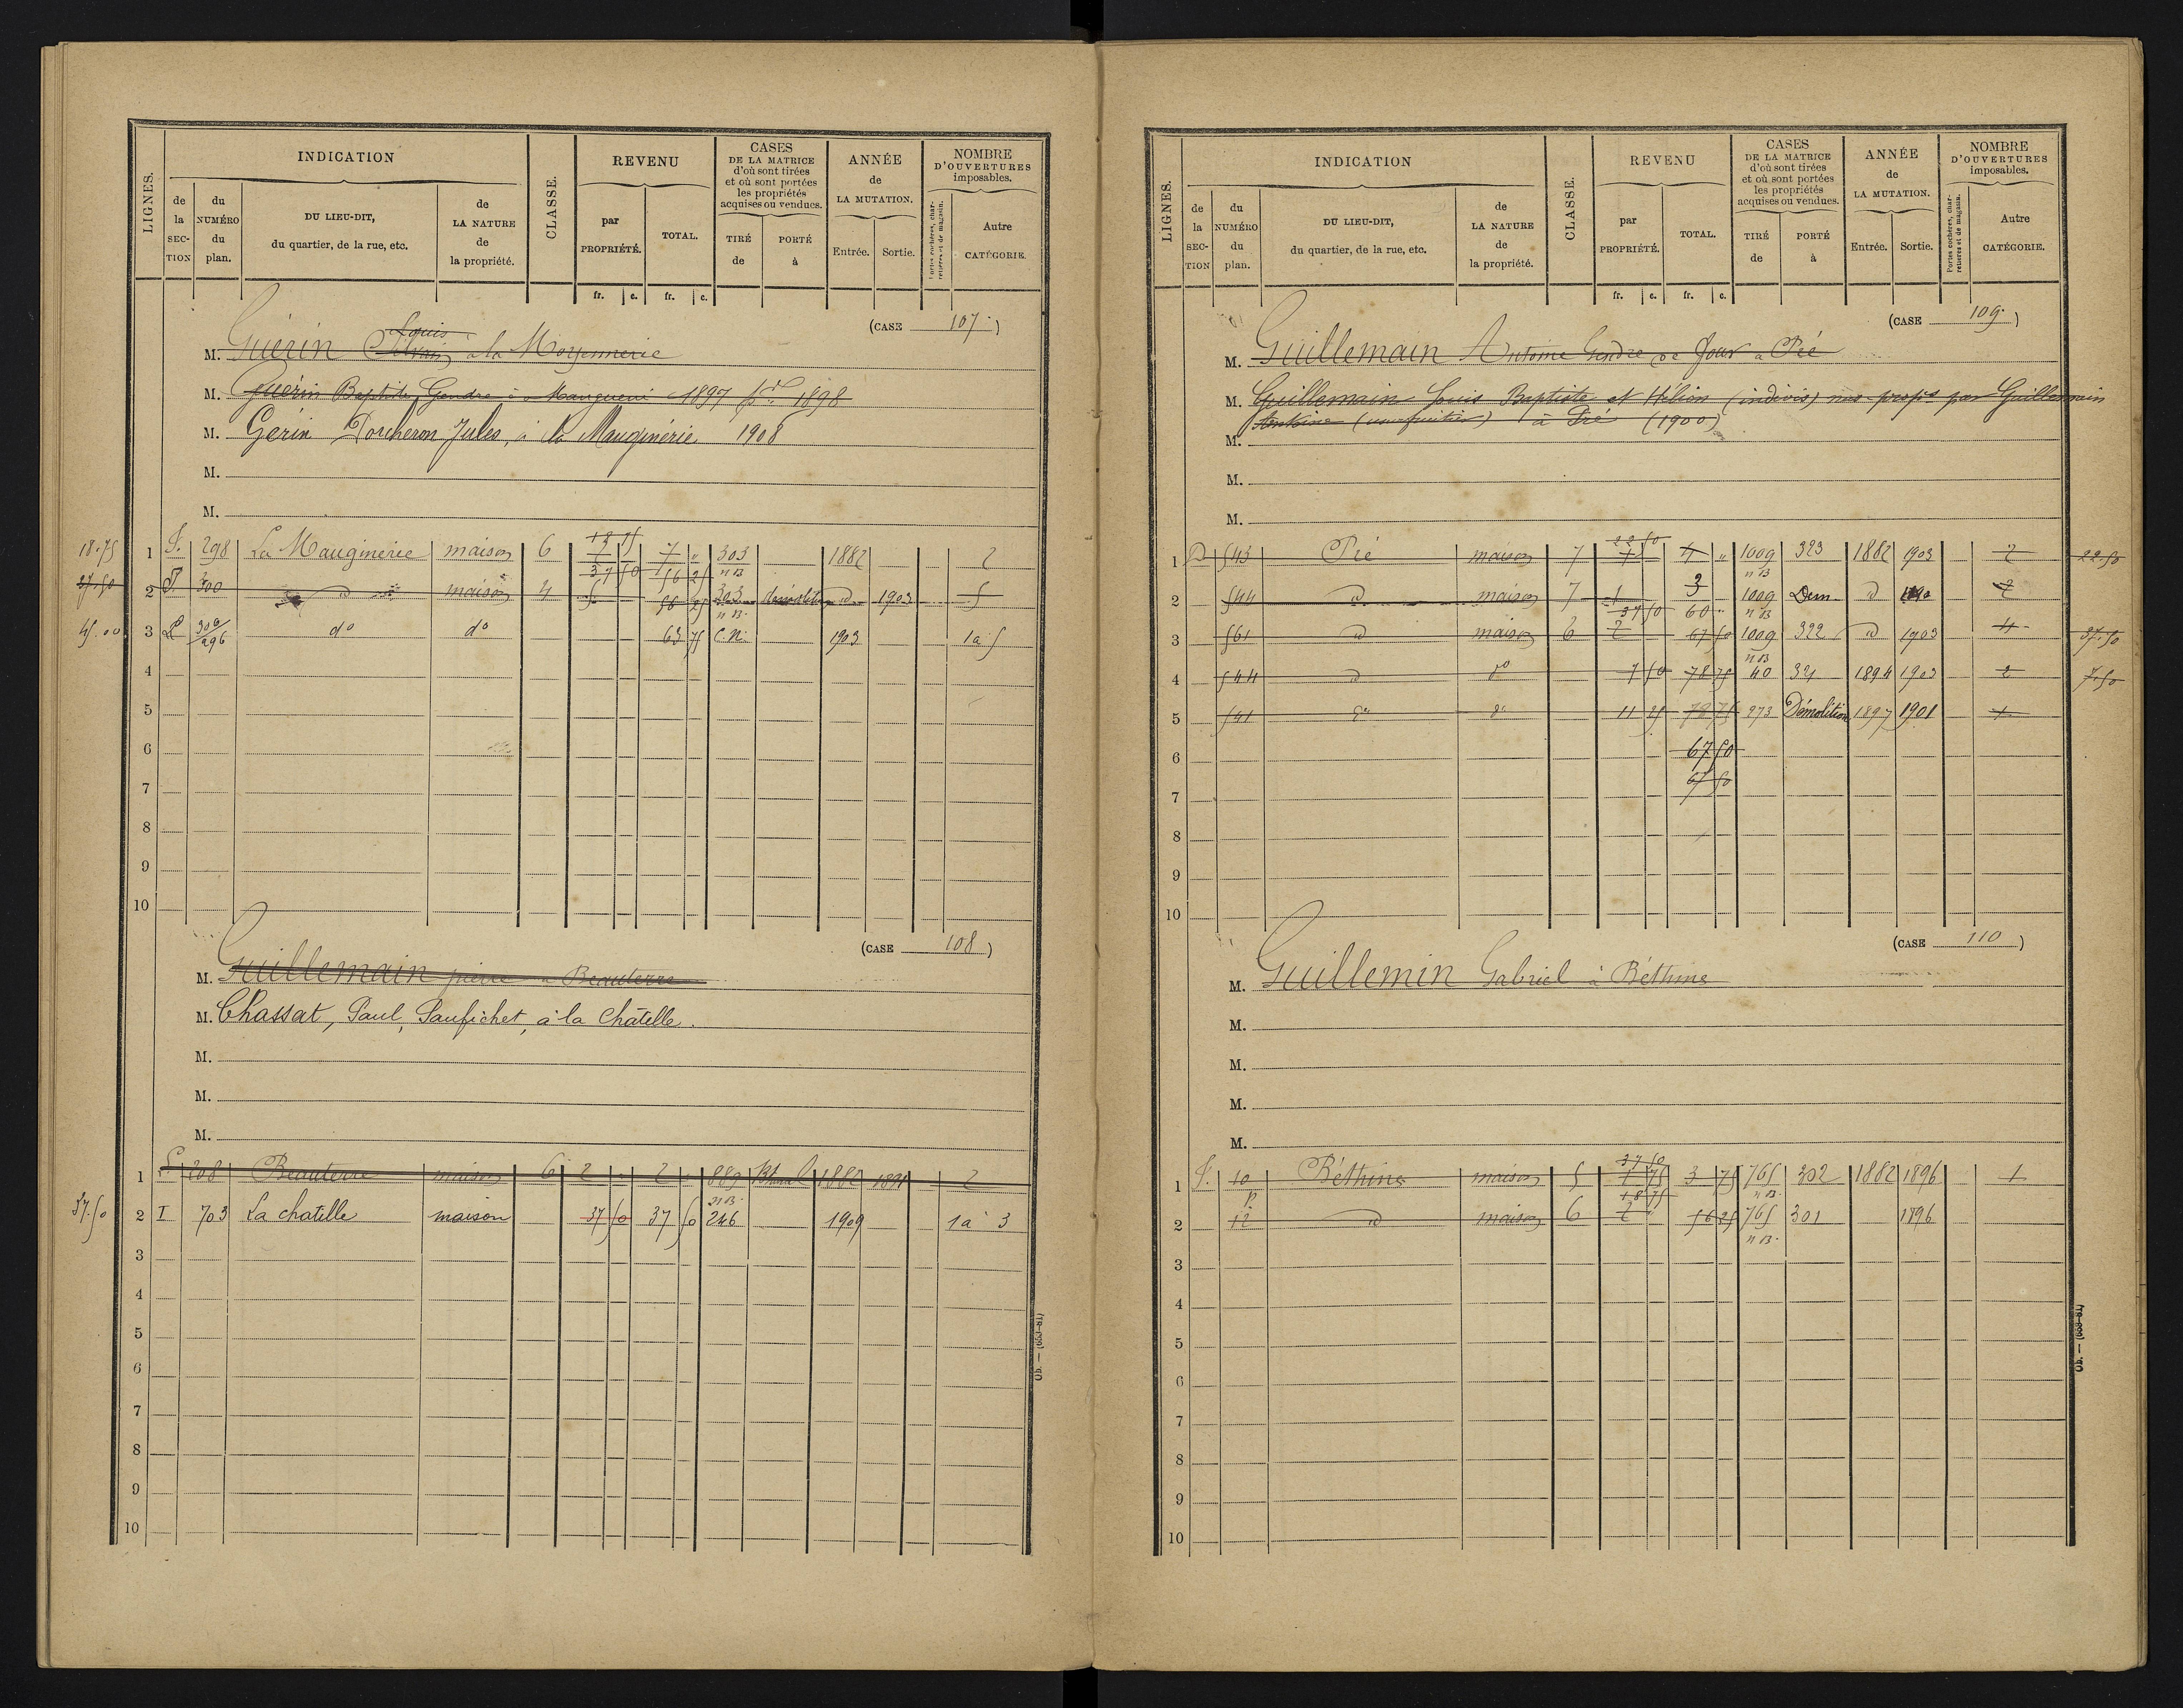 LIGNES.
INDICATION
de la SECTION
du NUMÉRO du plan.
DU LIEU-DIT, du quartier, de la rue, etc.
de LA NATURE de la propriété.
CLASSE.
REVENU
par PROPRIÉTÉ.
TOTAL.
fr. c. fr. c.
CASES DE LA MATRICE d'où sont tirées et où sont portées les propriétés acquises ou vendues.
TIRÉ de
PORTÉ à
ANNÉE de LA MUTATION.
Entrée. Sortie.
NOMBRE D'OUVERTURES imposables.
Portes cochères, charretières et de magasin.
Autre CATÉGORIE.
(CASE 107.)
Louis
M. Guérin Silvain à la
M. Guérin Baptiste, Gendre à 1897 1898
M. Gérin Porcheron Jules, à la Mauginérie 1908
M.
M.
18 75
18.75 1 298 La Mauginerie maison 6 7 7 " 303 1882 2
37 50 56 25 n B
37.50 2 300 d maison 4 58 25 303 Démolition d 1903 5
n B.
45.00 3 300/296 do do 63 75 C.N. 1903 1 à 5
4
5
6
7
8
9
10
(CASE 108)
M. Guillemain pierre à Beauterre
M. Chassat, Paul, Paufichet, à la Châtelle.
M.
M.
M.
1 208 Beauterre maison 6 2 " 2 " 889 1882 1891 2
n B.
37.50 2 I 703 La chatelle maison 37 50 37 50 246 1909 1 à 3
3
4
5
6
7
8
9
10
LIGNES.
INDICATION
de la SECTION
du NUMÉRO du plan.
DU LIEU-DIT, du quartier, de la rue, etc.
de LA NATURE de la propriété.
CLASSE.
REVENU
par PROPRIÉTÉ.
TOTAL.
fr. c. fr. c.
CASES DE LA MATRICE d'où sont tirées et où sont portées les propriétés acquises ou vendues.
TIRÉ de
PORTÉ à
ANNÉE de LA MUTATION.
Entrée. Sortie.
NOMBRE D'OUVERTURES imposables.
Portes cochères, charretières et de magasin.
Autre CATÉGORIE.
(CASE 109.)
M. Guillemain Antoine Gendre de à Pié
M. Guillemain Louis Baptiste et Hélion (indivis) nus-propres par Guillemain
M. Antoine (usufruitier) à Piré (1900)
M.
M.
22 50
1 D 543 Pié maison 7 4 4 " 1009 323 1882 1903 2 22.50
n B
2 544 d maison 7 1 3 1009 Dem d 2
37 50 60 " n B
3 561 d maison 6 2 67 50 1009 322 d 1903 4 37.50
n B
4 544 d do 7 50 78 75 40 321 1894 1903 2 7.50
5 541 do do 11 25 78 75 273 Démolition 1897 1901 1
6 67 50
67 50
7
8
9
10
(CASE 110)
M. Guillemin Gabriel à Béthine
M.
M.
M.
M.
37 50
1 10 Béthine maison 5 1 75 3 75 765 302 1882 1896 1
p. 18 75 n B.
2 12 d maison 6 2 " 56 25 765 301 1896
n B.
3
4
5
6
7
8
9
10